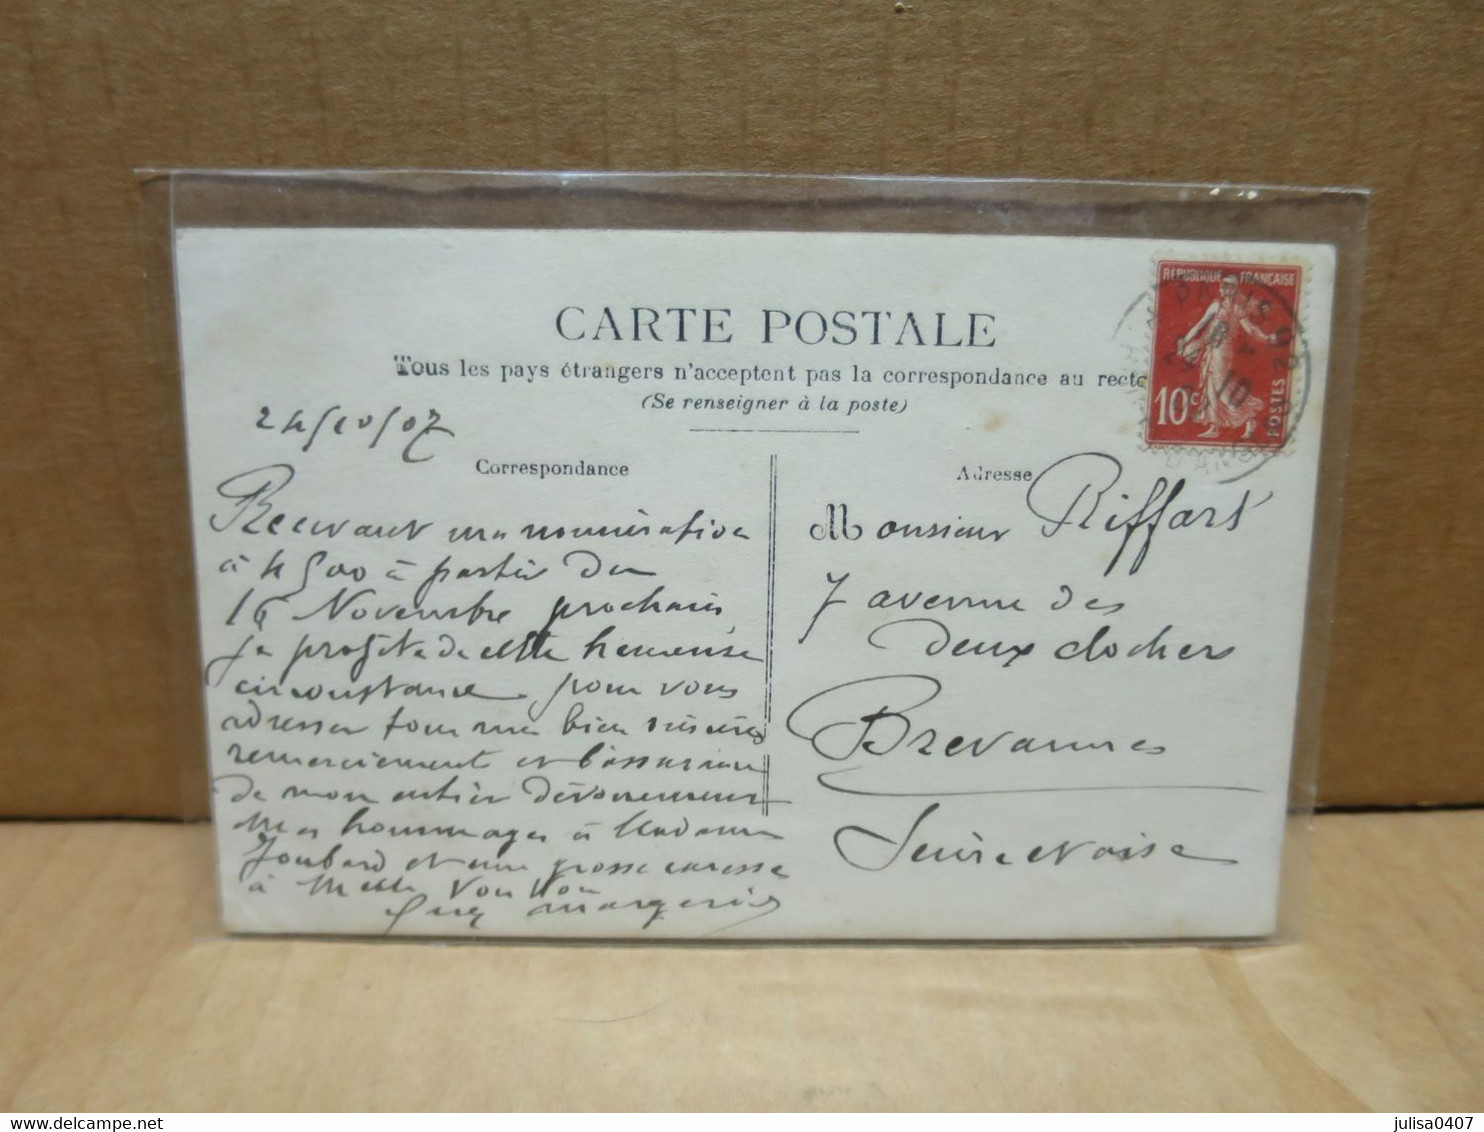 CARTE POSTALE
Tous les pays étrangers n'acceptent pas la correspondance au recto
(Se renseigner à la poste)
RÉPUBLIQUE FRANÇAISE
10c
POSTES
PARIS
24/10/07
Correspondance
Recevant ma nomination
à 4500 à partir du
16 Novembre prochain
je profite de cette heureuse
circonstance pour vous
adresser tous mes bien sincères
remerciements et l'assurance
de mon entier dévouement
Mes hommages à Madame
et une grosse caresse
à Melle
Adresse
Monsieur Riffart
7 avenue des
deux clochers
Brevannes
Seine et Oise
julisa0407